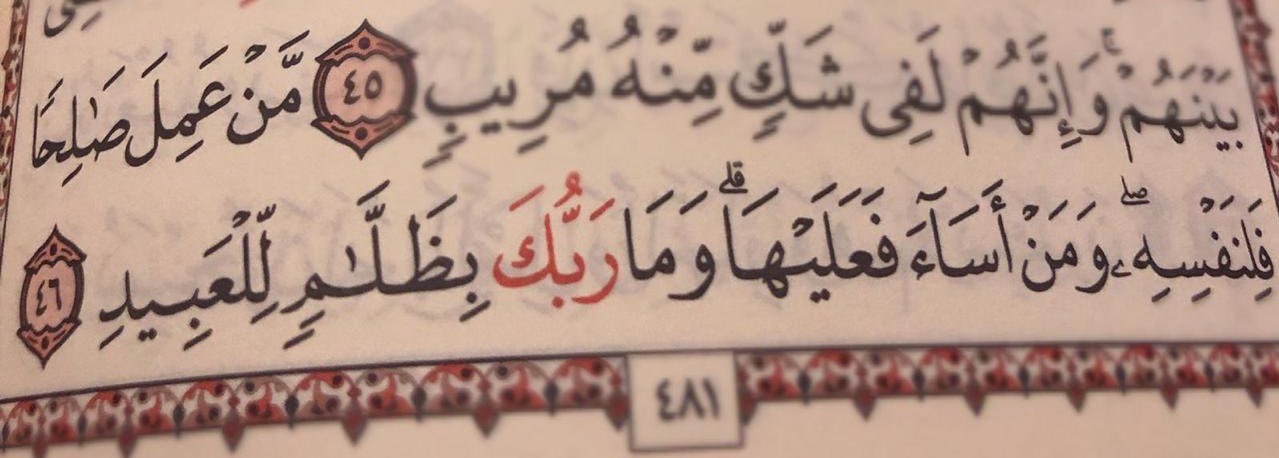 بَيْنَهُمْ ۚ وَإِنَّهُمْ لَفِى شَكٍّ مِّنْهُ مُرِيبٍ ٤٥ مَّنْ عَمِلَ صَٰلِحًا
فَلِنَفْسِهِۦ ۖ وَمَنْ أَسَآءَ فَعَلَيْهَا ۗ وَمَا رَبُّكَ بِظَلَّٰمٍ لِّلْعَبِيدِ ٤٦
٤٨١